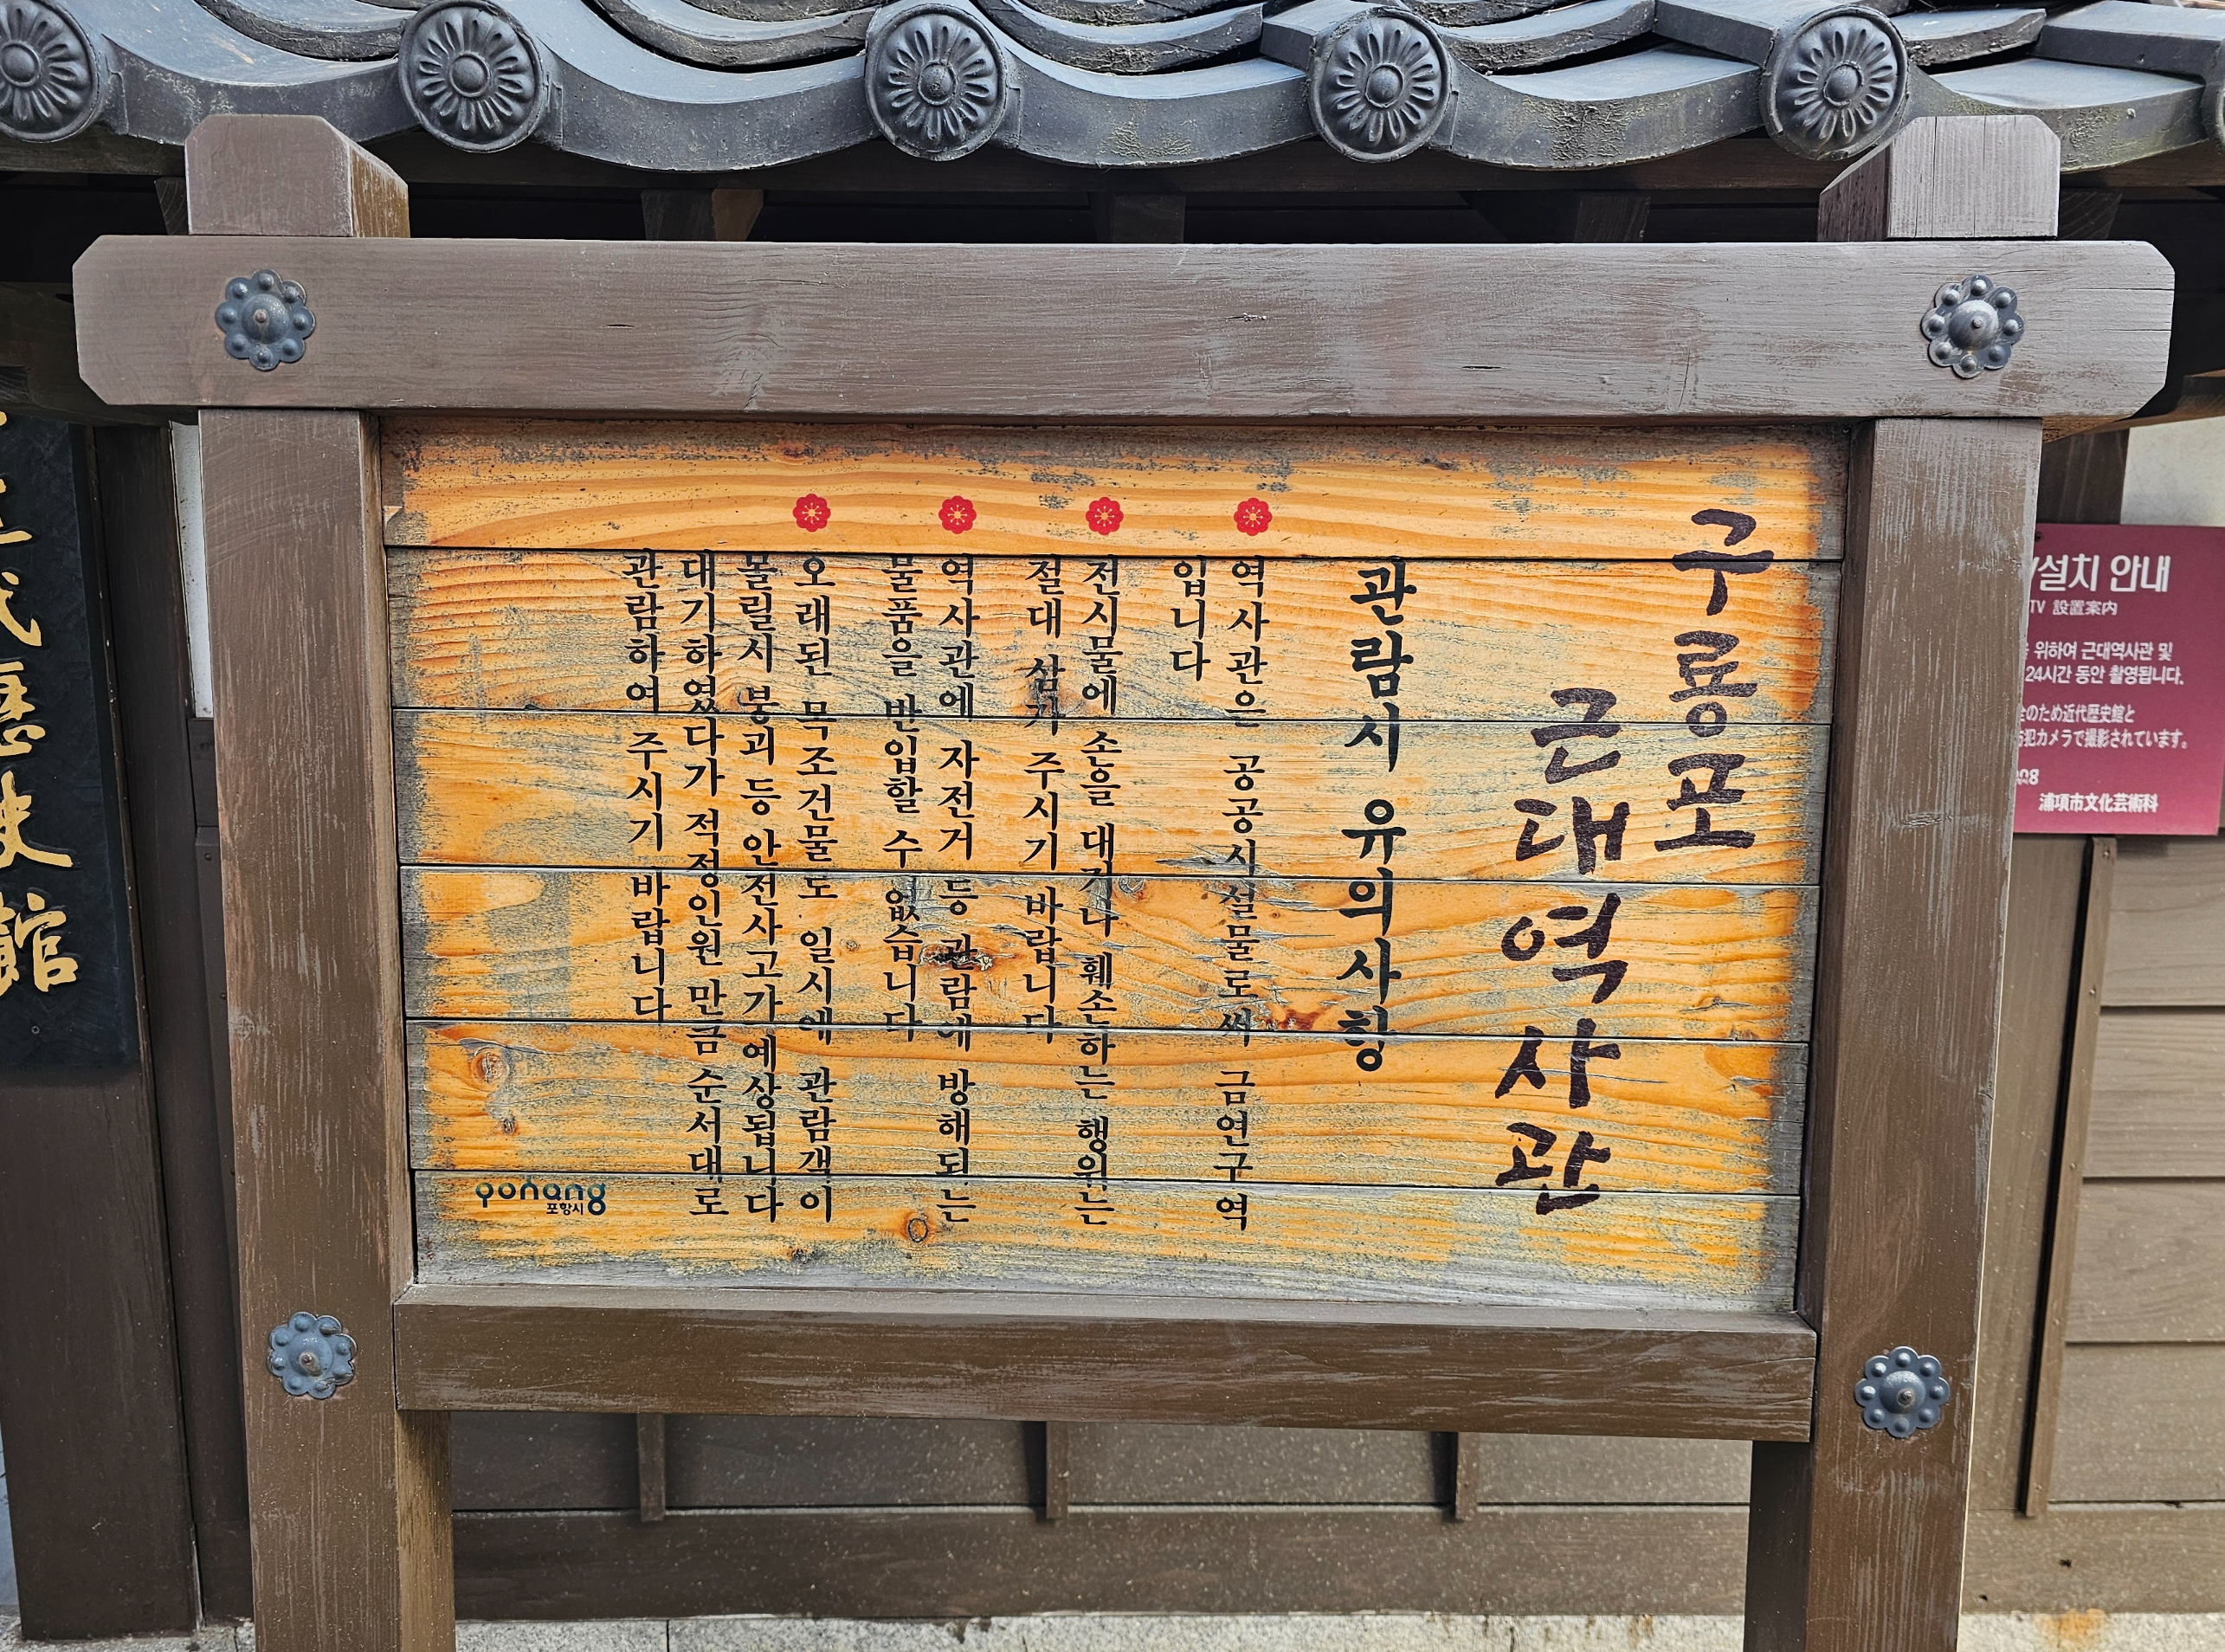 구룡포
근대역사관
관람시 유의사항
역사관은 공공시설물로써 금연구역
입니다
전시물에 손을 대거나 훼손하는 행위는
절대 삼가 주시기 바랍니다
역사관에 자전거 등 관람에 방해되는
물품을 반입할 수 없습니다
오래된 목조건물로 일시에 관람객이
몰릴시 붕괴 등 안전사고가 예상됩니다
대기하였다가 적정인원 만큼 순서대로
관람하여 주시기 바랍니다
pohang
포항시
설치 안내
TV 設置案内
위하여 근대역사관 및
24시간 동안 촬영됩니다.
のため近代歴史館と
犯カメラで撮影されています。
浦項市文化芸術科
代
歷
史
館